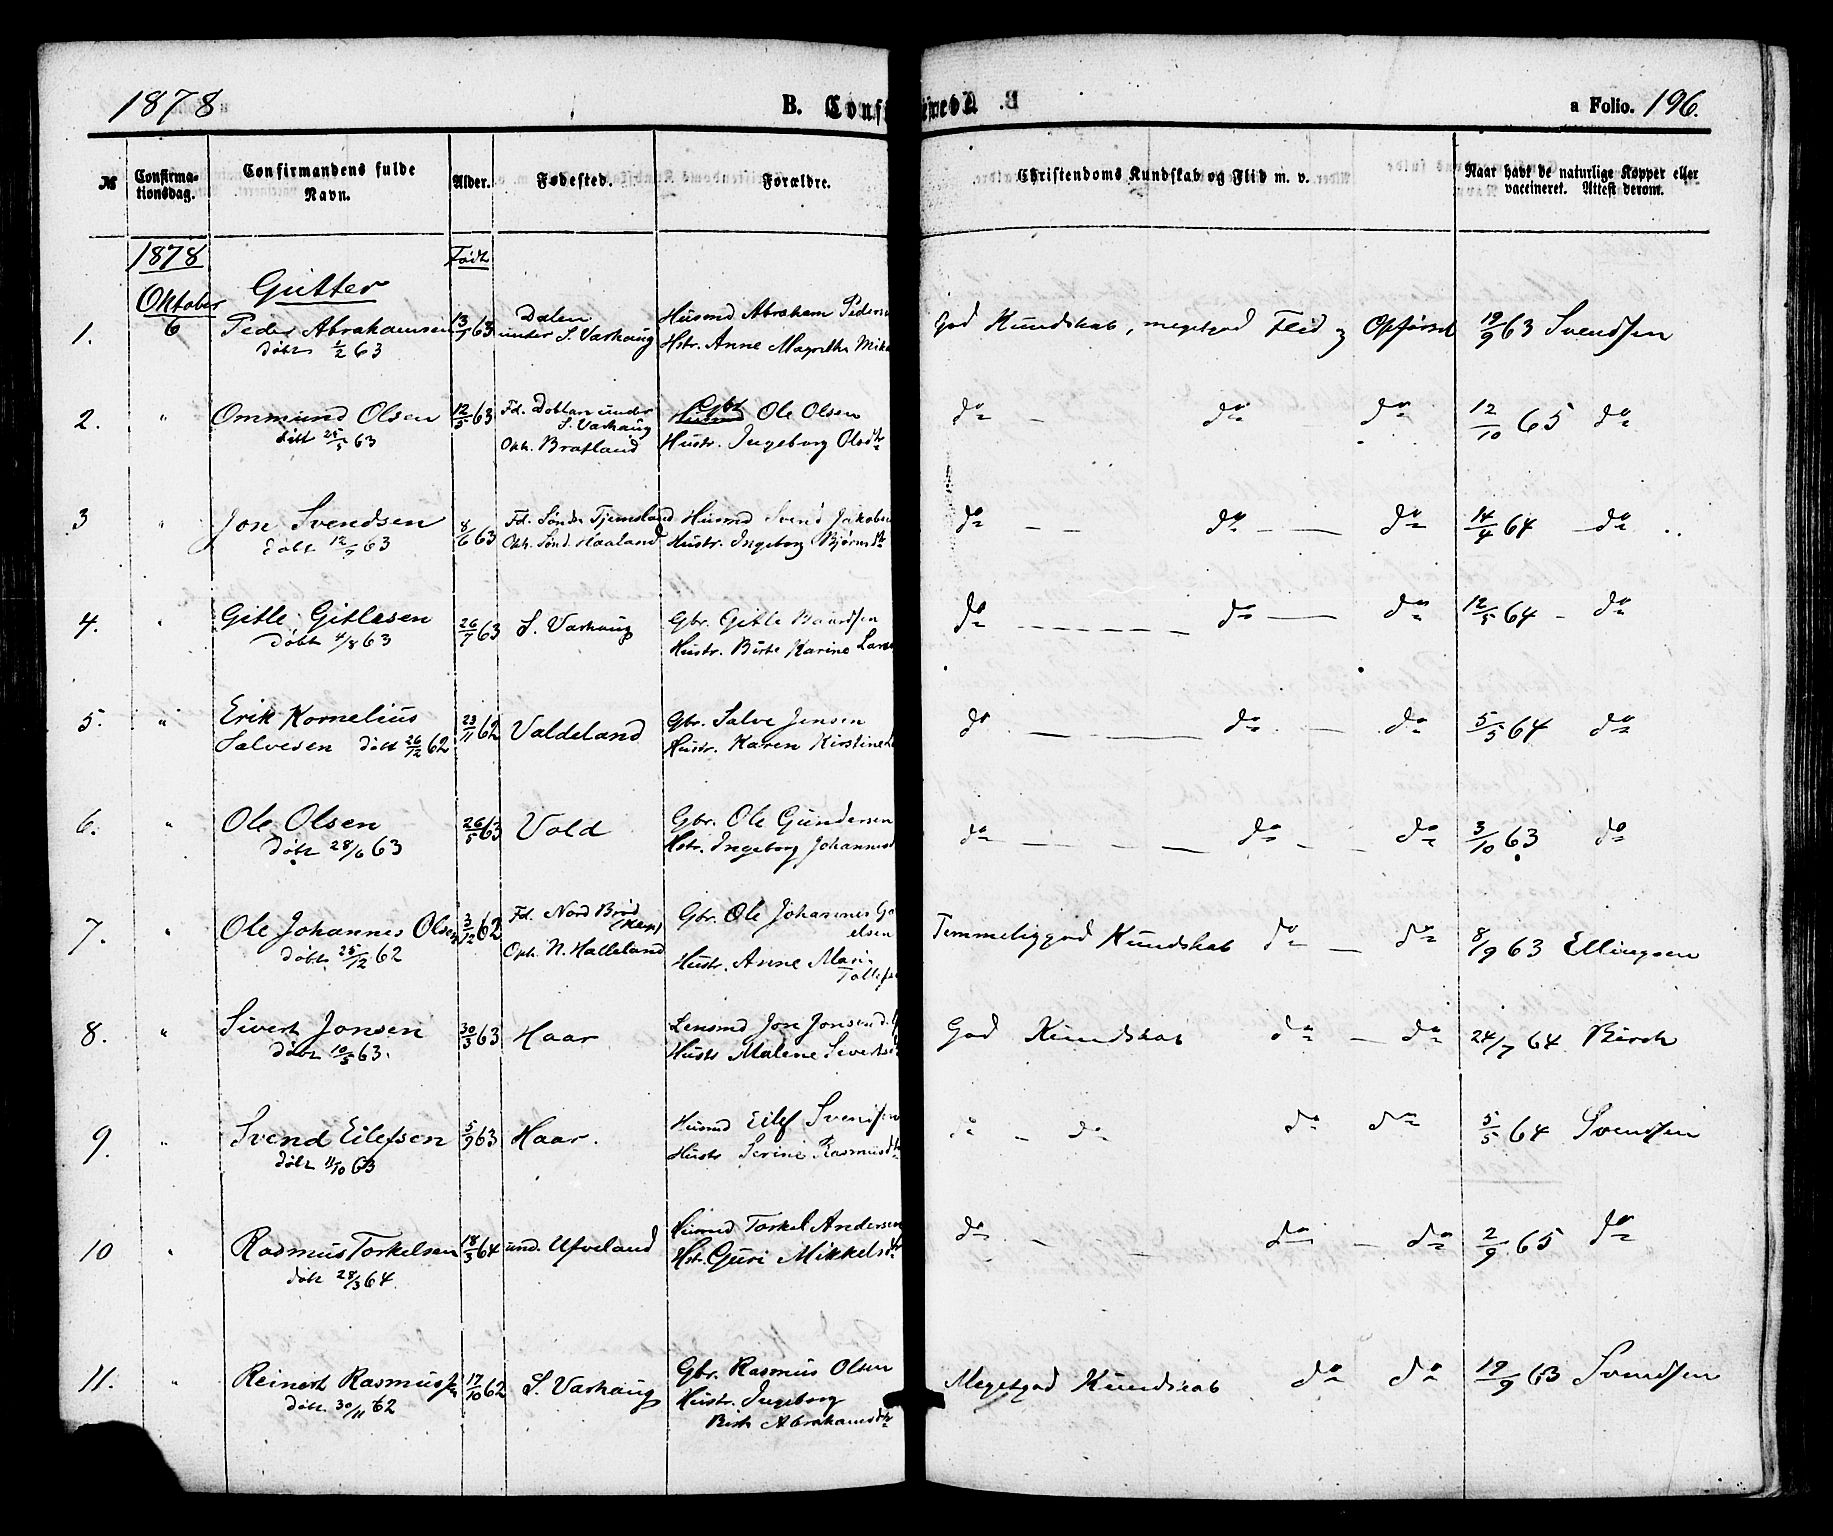 1878 B. Conf a Folio. 196.
№ Confirma-tionsdag. Confirmandens fulde Navn. Alder. Fødested. Forældre. Christendoms Kundskab og Flid m. v. Naar havt de naturlige Kopper eller vaccineret. Attest derom.
1878 Født
Oktober Gutter
1. 6 Peder Abrahamsen 63 Dalen Husmd Abraham Peders God Kundskab, megetgod Flid og Opførsel 19/9 63 Svendsen
døbt 63 under S. Varhaug Hstr. Anne Magrethe Mik
2. " Ommund Olsen 12/5 63 Fd. under Gbr Ole Olsen do — do do 12/10 65 do
døbt 25/5 63 S. Varhaug
Oph. Bratland Hustr. Ingeborg Olsdtr
3 " Jon Svendsen 8/6 63 Fd. Søndr Tjemsland Husmd Svend Jakobse do — — do — — do 14/4 64 do
døbt 63 Oph. Sønd. Haaland Hustr. Ingeborg Bjørnsdtr
4. " Gitle Gitlesen 26/7 63 S. Varhaug Gbr. Gitle Baardsen do — do — do 12/5 64 - do
døbt 4/8 63 Hustr. Birte Karine Lar
5. " Erik Kornelius 23/11 62 Valdeland Gbr. Salve Jensen do — do — do 5/5 64 do
Salvesen døbt 26/12 62 Hustr. Karen Kirstine
6. " Ole Olsen 26/5 63 Vold Gbr. Ole Gundersen do — do — do 3/10 63 do
døbt 28/6 63 Hstr. Ingeborg Johannesd
7. " Ole Johannes Olsen 3/12 62 Fd. Nord Brød Gbr. Ole Johannes Ga Temmeliggod Kundskab do — do 8/9 63 Ellingsen
døbt 25/12 62 Oph. N. Halleland elsen
Hustr. Anne Mari-
Tollefs
8. " Sivert Jonsen 63 Haar Lensmd Jon Jonsen God Kundskab do — do 24/7 64 Birch
døbt 10/5 63. Hustr Malene Siverts
9. " Svend Eilefsen 5/9 63 Haar. Husmd Eilef Svendsen do — do do do 5/5 64 Svendsen
døbt 4/10 63 Hustr Serine Rasmusdtr
10 " Rasmus Torkelsen 18/3 64 und. Ufveland Husmd Torkel Andersen do — — do — do 2/9 65 do
døbt 28/3 64. Hstr. Guri Mikkelsdtr
11. " Reinert Rasmussen 17/10 62 S. Varhaug Gbr. Rasmus Olsen Megetgod Kundskab do do 19/9 63 Svendsen
døbt 30/11 62 Hustr. Ingeborg
Birte Abrahamsdtr